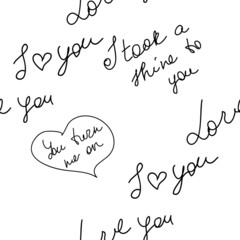 Lo
I ♡ you
I took a
shine to
you
e you
You turn
me on
Love
I ♡ you
Love you